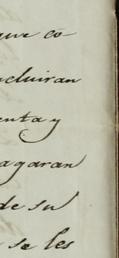 que co-
cluiran
enta y
agaran
de su
se les